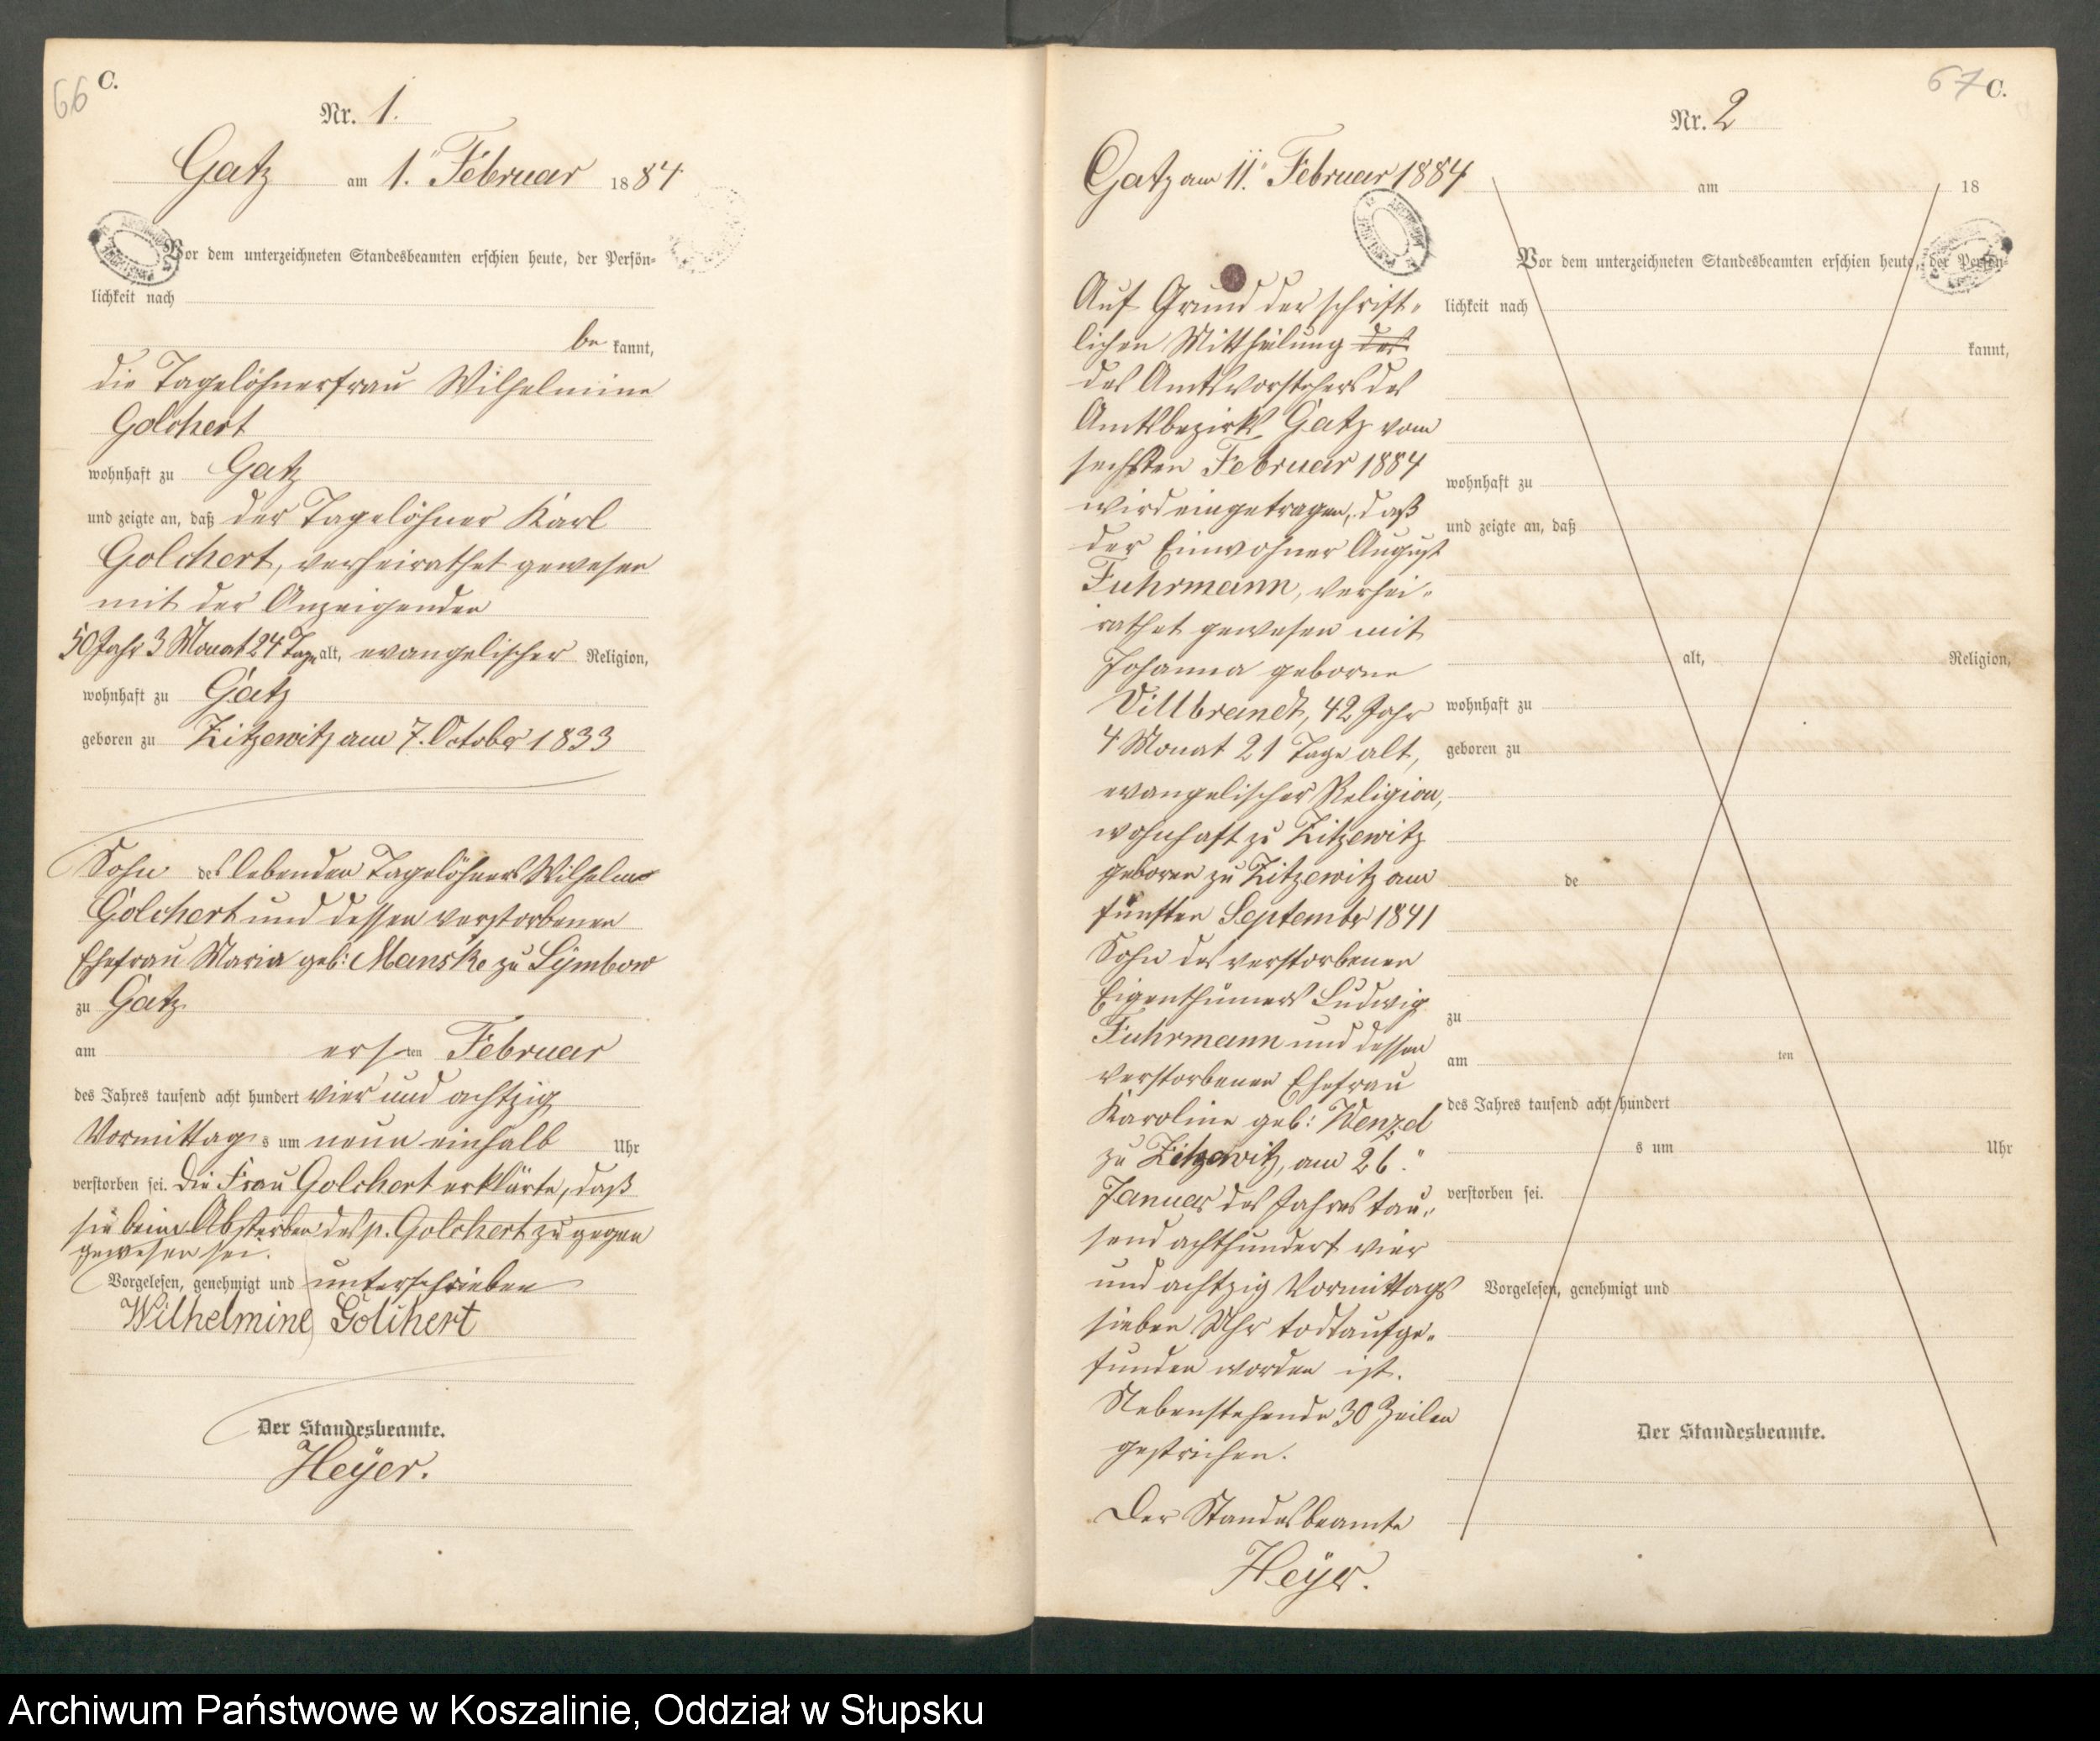 66 C.
Nr. 1.
Gatz am 1. Februar 1884
Vor dem unterzeichneten Standesbeamten erschien heute, der Persön-
lichkeit nach
be kannt,
die Tagelöhnerfrau Wilhelmine
Golchert
wohnhaft zu Gatz
und zeigte an, daß der Tagelöhner Karl
Golchert, verheirathet gewesen
mit der Anzeigenden
50 Jahr 3 Monat 24 Tage alt, evangelischer Religion,
wohnhaft zu Gatz
geboren zu Zitzewitz am 7. October 1833
Sohn des lebenden Tagelöhners Wilhelm
Golchert und dessen verstorbenen
Ehefrau Maria geb: Manske zu Symbow
zu Gatz
am ersten Februar
des Jahres tausend acht hundert vier und achtzig
Vormittags um neun einhalb Uhr
verstorben sei. Die Frau Golchert erklärte, daß
sie beim Absterben des p. Golchert zugegen
gewesen sei.
Vorgelesen, genehmigt und unterschrieben
Wilhelmine Golchert
Der Standesbeamte.
Heyer.
67 C.
Nr. 2
Gatz am 11. Februar 1884
Auf Grund der schrift-
lichen Mittheilung des
des Amtsvorstehers des
Amtsbezirks Gatz vom
sechsten Februar 1884
wird eingetragen, daß
der Einwohner August
Fuhrmann, verhei-
rathet gewesen mit
Johanna geborne
Villbrandt, 42 Jahr
4 Monat 21 Tage alt,
evangelischer Religion,
wohnhaft zu Zitzewitz
geboren zu Zitzewitz am
fünften September 1841
Sohn des verstorbenen
Eigenthümers Ludwig
Fuhrmann und dessen
verstorbenen Ehefrau
Karoline geb: Wenzel
zu Zitzewitz, am 26.
Januar des Jahres tau-
send achthundert vier
und achtzig Vormittags
sieben Uhr todtaufge-
funden worden ist.
Nebenstehende 30 Zeilen
gestrichen.
Der Standesbeamte
Heyer.
am 18
Vor dem unterzeichneten Standesbeamten erschien heute, der Persön-
lichkeit nach
kannt,
wohnhaft zu
und zeigte an, daß
alt, Religion,
wohnhaft zu
geboren zu
de
zu
am ten
des Jahres tausend acht hundert
s um Uhr
verstorben sei.
Vorgelesen, genehmigt und
Der Standesbeamte.
Archiwum Państwowe w Koszalinie, Oddział w Słupsku